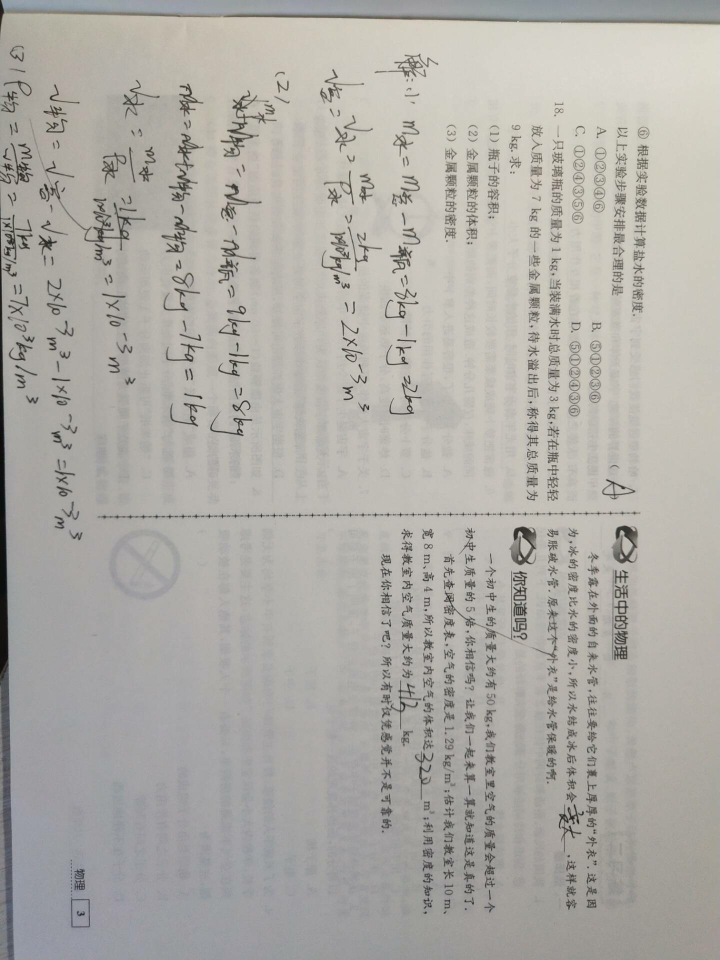 ⑥ 根据实验数据计算盐水的密度.
以上实验步骤安排最合理的是 ( A
A. ①②③④⑥ B. ⑤①②③⑥
C. ①②④③⑤⑥ D. ⑤①②④③⑥
18. 一只玻璃瓶的质量为 1 kg,当装满水时总质量为 3 kg,若在瓶中轻轻
放入质量为 7 kg 的一些金属颗粒,待水溢出后,称得其总质量为
9 kg.求:
(1) 瓶子的容积;
(2) 金属颗粒的体积;
(3) 金属颗粒的密度.
解:(1) m水=m总-m瓶=3kg-1kg=2kg
V容=V水=m水/ρ水=2kg/1×10³kg/m³=2×10-3m³
(2)
m水+m物=m总-m瓶=9kg-1kg=8kg
m水=m水+m物-m物=8kg-7kg=1kg
V水=m水/ρ水=1kg/1×10³kg/m³=1×10-3m³
V物=V容-V水=2×10-3m³-1×10-3m³=1×10-3m³
(3) ρ物=m物/V物=7kg/1×10-3m³=7×10³kg/m³
生活中的物理
冬季露在外面的自来水管,往往要给它们裹上厚厚的“外衣”.这是因
为,冰的密度比水的密度小,所以水结成冰后体积会变大,这样就容
易胀破水管.原来这个“外衣”是给水管保暖的啊.
你知道吗?
一个初中生的质量大约有 50 kg,我们教室里空气的质量会超过一个
初中生质量的 5 倍,你相信吗? 让我们一起来算一算就知道这是真的了.
首先查阅密度表,空气的密度是 1.29 kg/m³;估计我们教室长 10 m、
宽 8 m、高 4 m,所以教室内空气的体积达 320 m³;利用密度的知识,
求得教室内空气质量大约为 412 kg.
现在你相信了吧? 所以有时仅凭感觉并不是可靠的.
物理 3